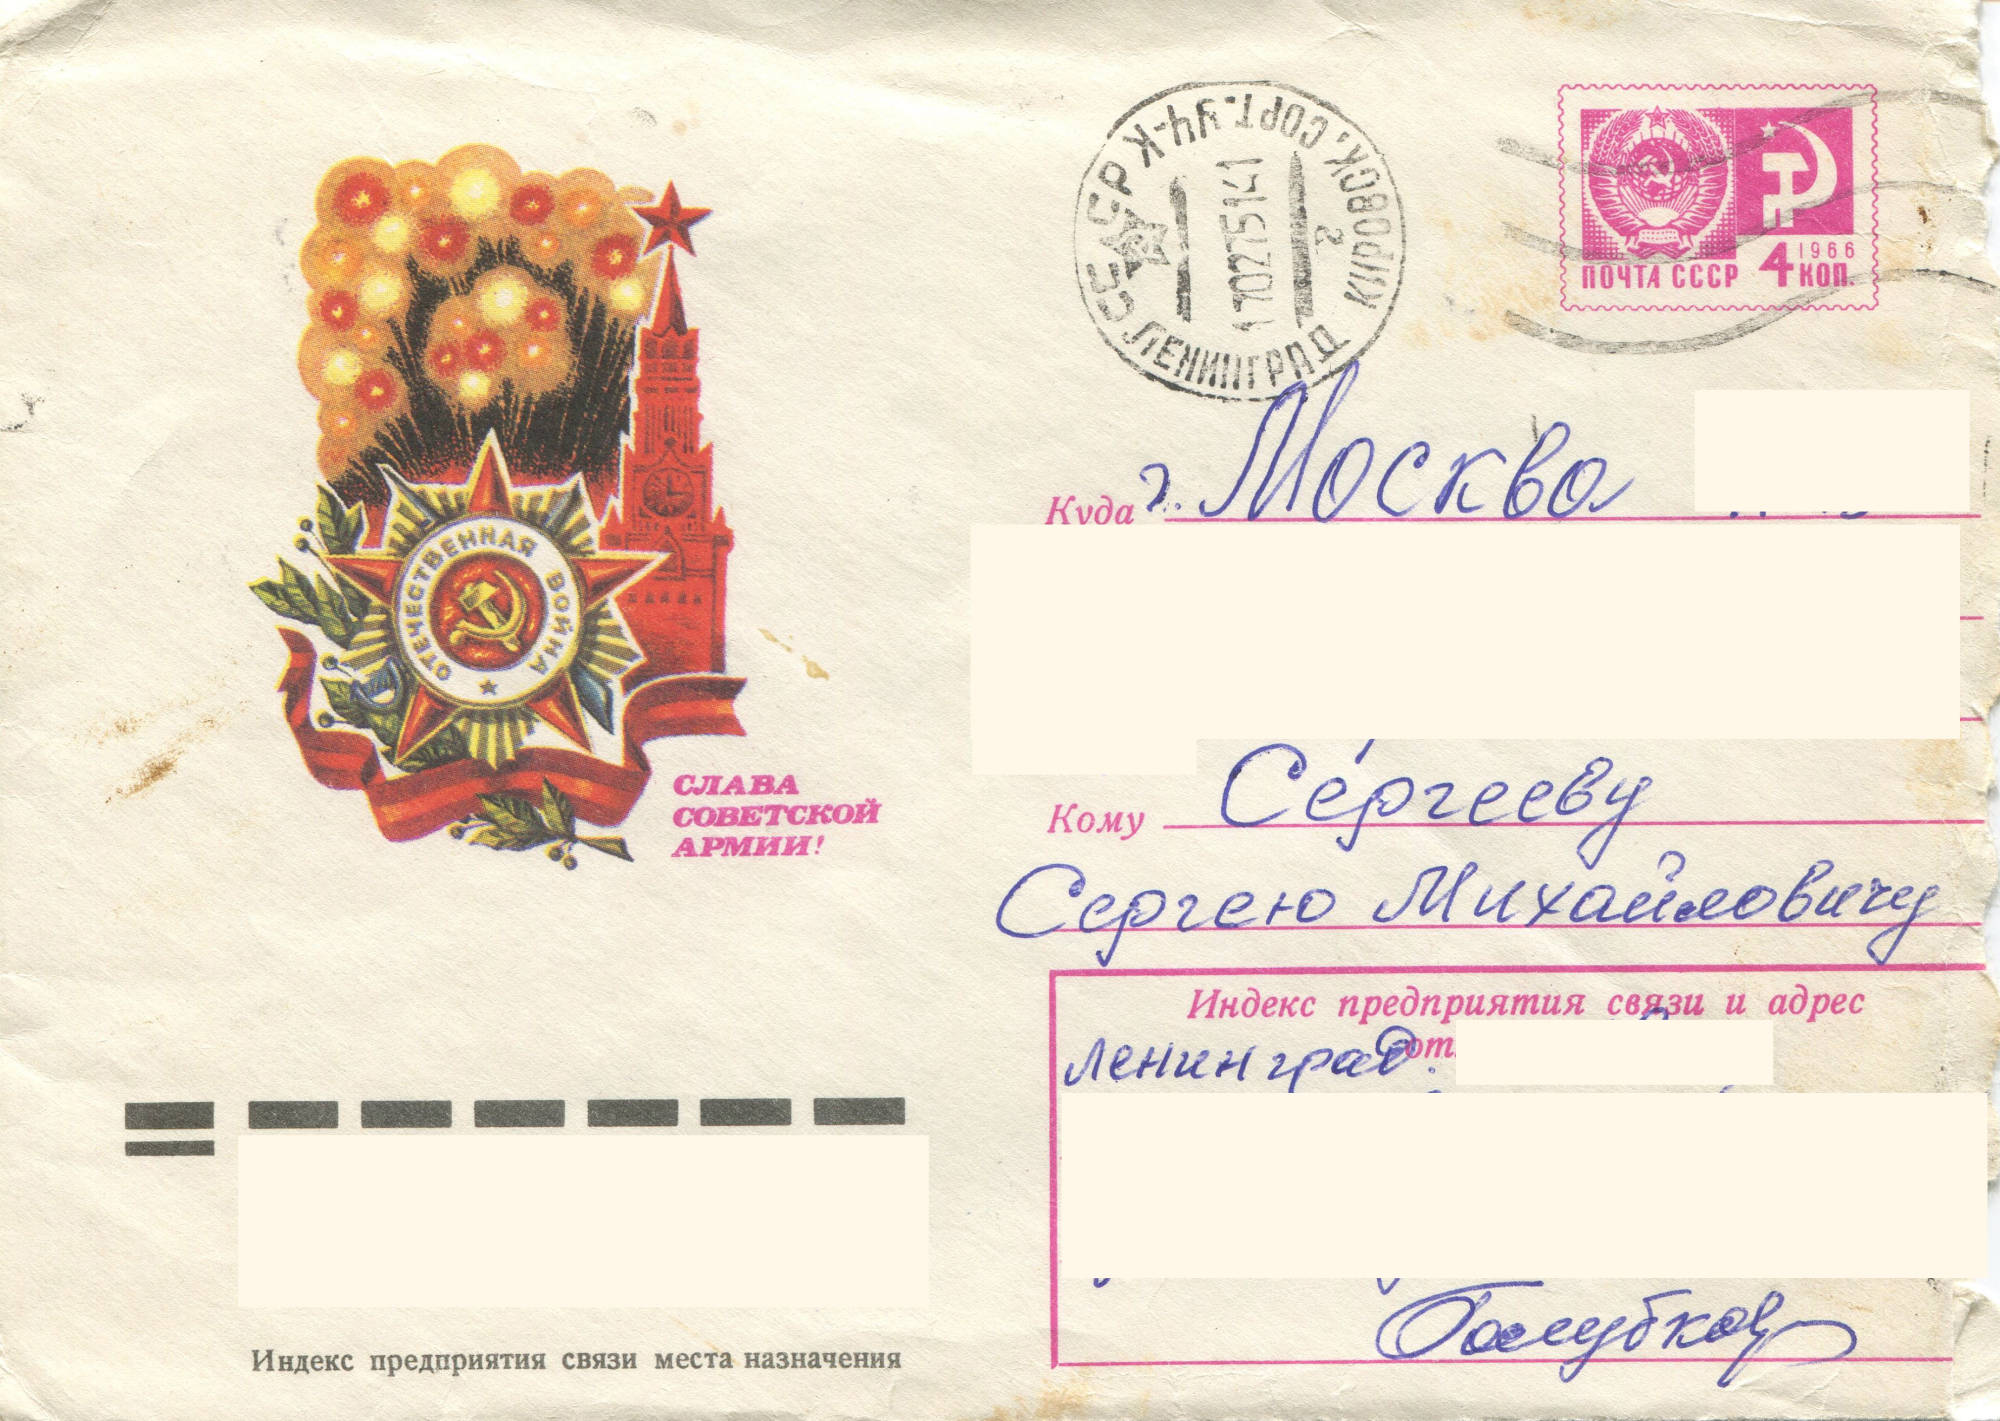 ОТЕЧЕСТВЕННАЯ ВОЙНА
СЛАВА
СОВЕТСКОЙ
АРМИИ!
СССР
ЛЕНИНГРАД
КИРОВСК. СОРТ. УЧ-К
17027514 1
2
1966
ПОЧТА СССР 4 КОП.
Куда г. Москва
Кому Сергееву
Сергею Михайловичу
Индекс предприятия связи и адрес
Ленинград.
Индекс предприятия связи места назначения